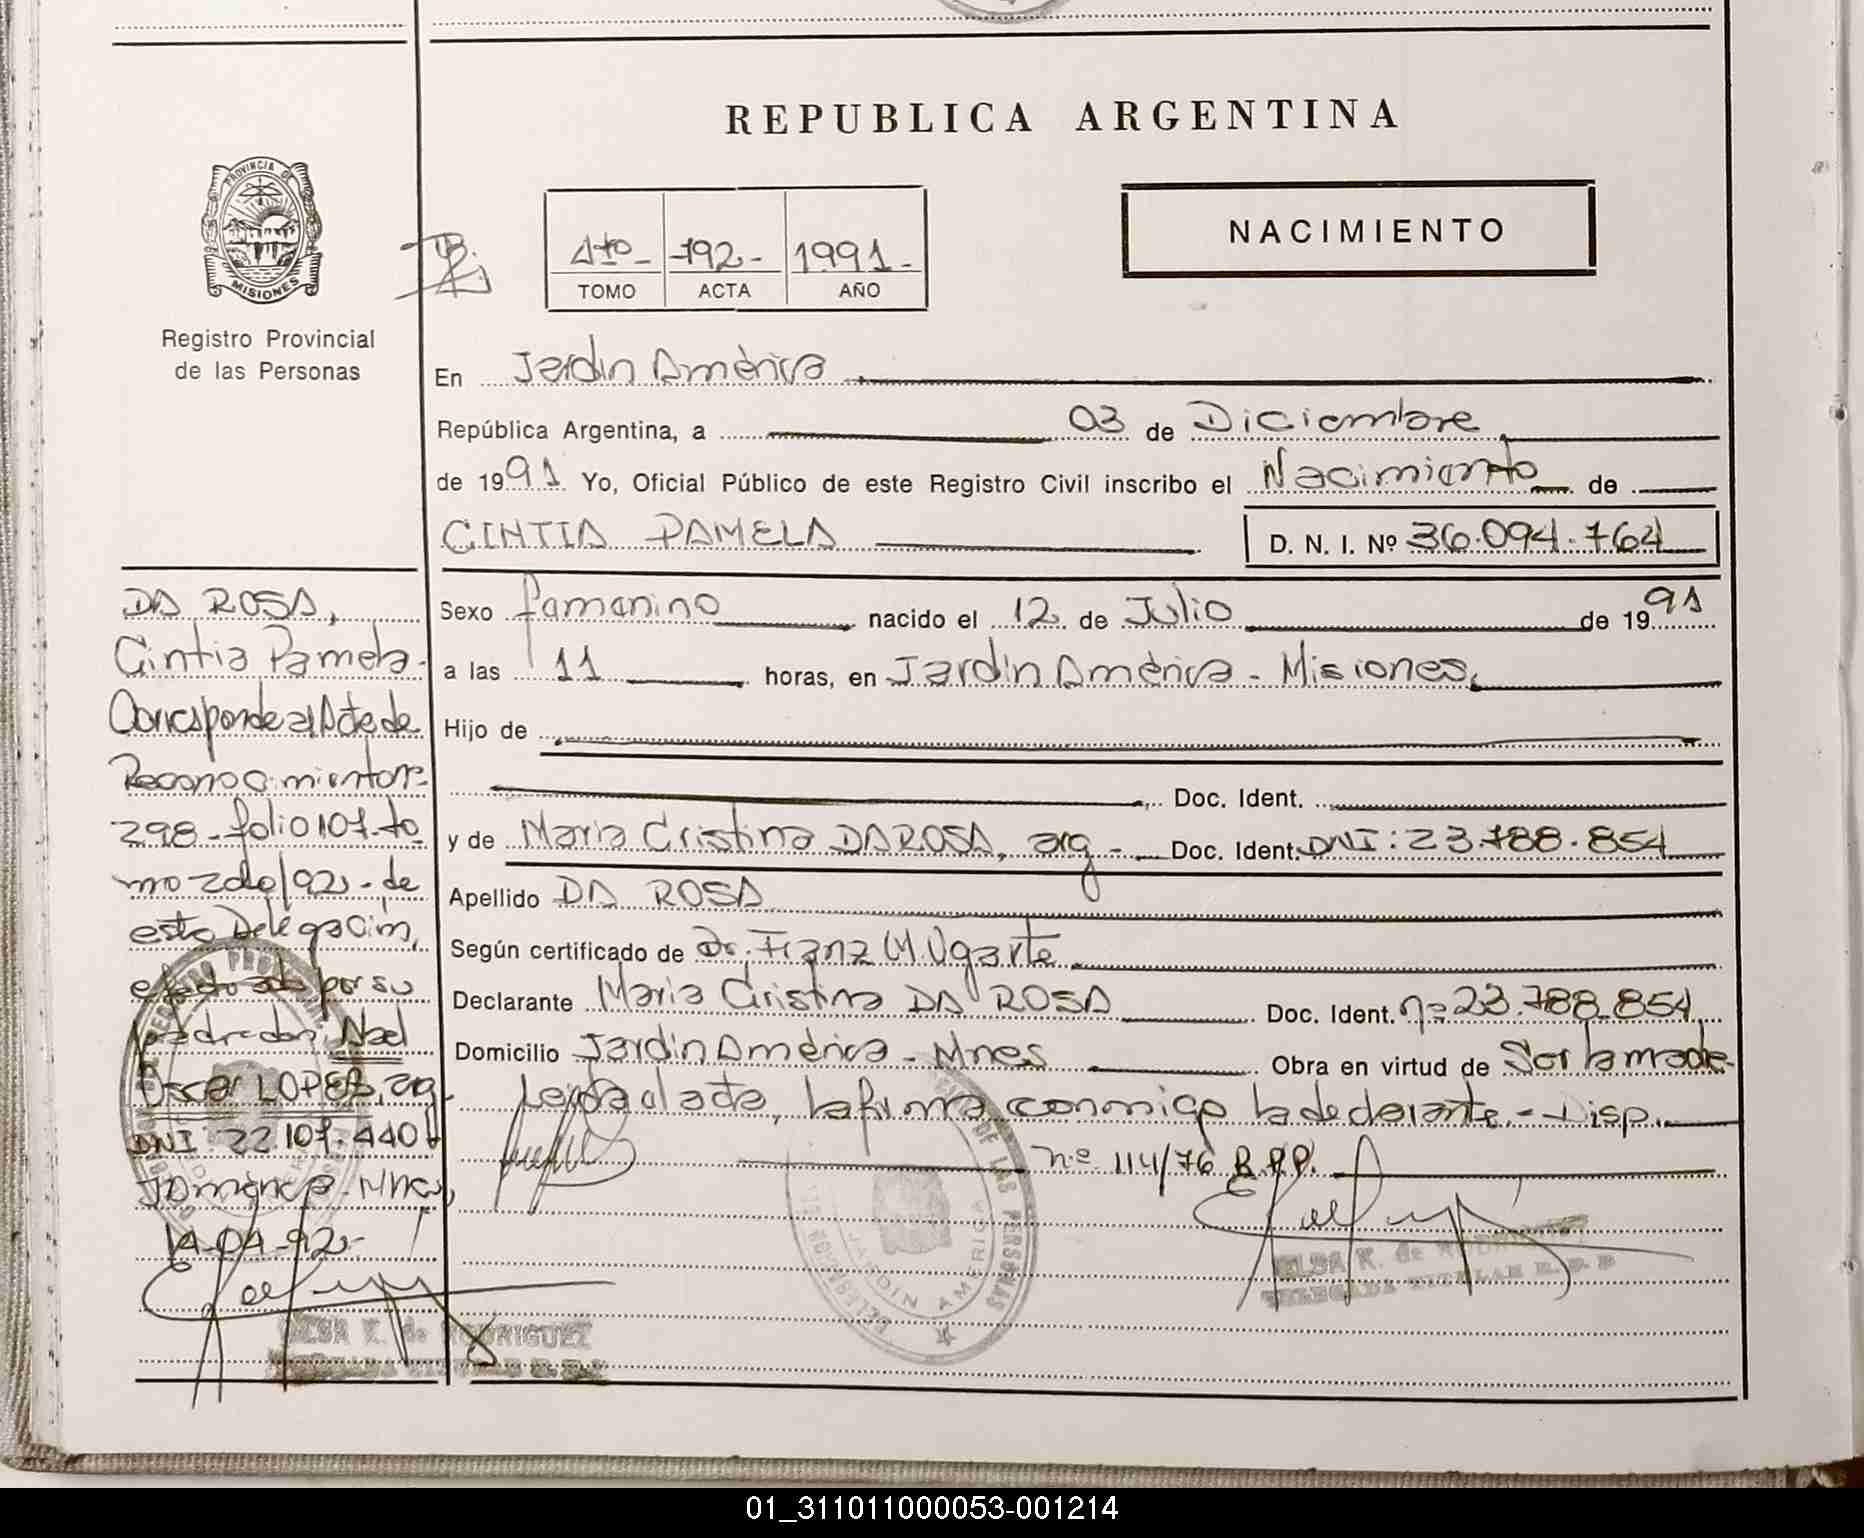 REPUBLICA ARGENTINA
PROVINCIA DE
MISIONES
Registro Provincial
de las Personas
NACIMIENTO
4to- 792- 1991-
TOMO ACTA AÑO
En Jardín América
República Argentina, a 03 de Diciembre
de 1991 Yo, Oficial Público de este Registro Civil inscribo el Nacimiento de
CINTIA PAMELA D. N. I. Nº 36.094.764
Sexo femenino nacido el 12 de Julio de 1991
a las 11 horas, en Jardín América - Misiones.
Hijo de
Doc. Ident.
y de Maria Cristina DA ROSA, arg - Doc. Ident. DNI: 23.788.854
Apellido DA ROSA
Según certificado de Dr. Franz M. Ugarte
Declarante Maria Cristina DA ROSA Doc. Ident. nº 23.788.854
Domicilio Jardín América - Mnes Obra en virtud de Ser la madre-
Leída el acta, la firma conmigo la declarante.- Disp.
nº 114/76 R.P.P.
DA ROSA,
Cintia Pamela-
Corresponde al Acta de
Reconocimiento nº
298-folio 107-to
mo 2do/92-de
esta Delegación,
efectuado por su
padre don Noel
Oscar LOPEZ, arg-
DNI: 22.107.440
JAmérica-Mnes,
14-04-92-
DELEGACION JARDIN AMERICA
DE LAS PERSONAS
ELSA K. de RODRIGUEZ
DELEGADA TITULAR R. P. P
ELSA K. de RODRIGUEZ
DELEGADA TITULAR R. P. P
01_311011000053-001214